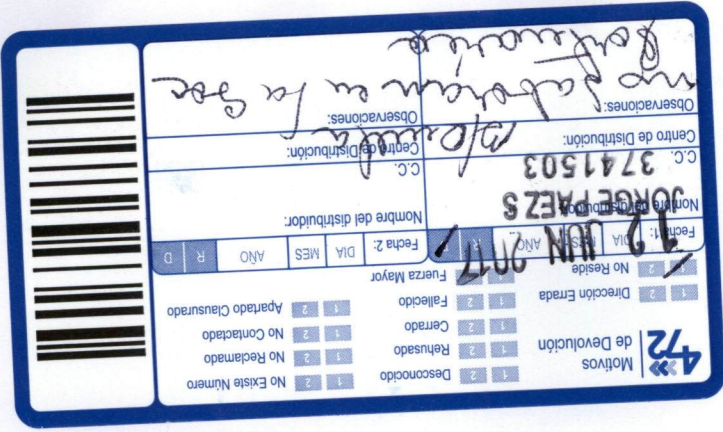 472
Motivos de Devolución
1 2 Desconocido
1 2 Rehusado
1 2 Cerrado
1 2 Fallecido
1 2 Fuerza Mayor
1 2 No Existe Número
1 2 No Reclamado
1 2 No Contactado
1 2 Apartado Clausurado
1 2 Dirección Errada
1 2 No Reside
Fecha 1: DIA MES AÑO R D
12 JUN 2017
Nombre del distribuidor:
JORGE PAEZ S
C.C. 3741503
Centro de Distribución:
Observaciones:
no laboran en la Soc
Portuaria
Fecha 2: DIA MES AÑO R D
Nombre del distribuidor:
C.C.
Centro de Distribución:
Observaciones: